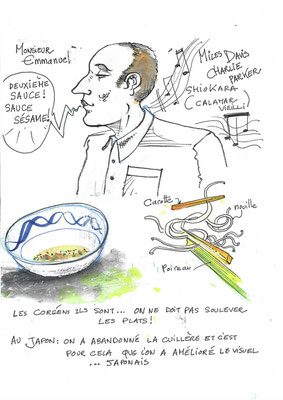 Monsieur
Emmanuel
DEUXIÈME
SAUCE!
SAUCE
SÉSAME!
MILES DAVIS
CHARLIE
PARKER
SHIOKARA
(CALAMAR
VIEILLI)
Carotte
nouille
Poireau
LES CORÉENS ILS SONT... ON NE DOIT PAS SOULEVER
LES PLATS!
AU JAPON: ON A ABANDONNÉ LA CUILLÈRE ET C'EST
POUR CELA QUE L'ON A AMÉLIORÉ LE VISUEL
... JAPONAIS